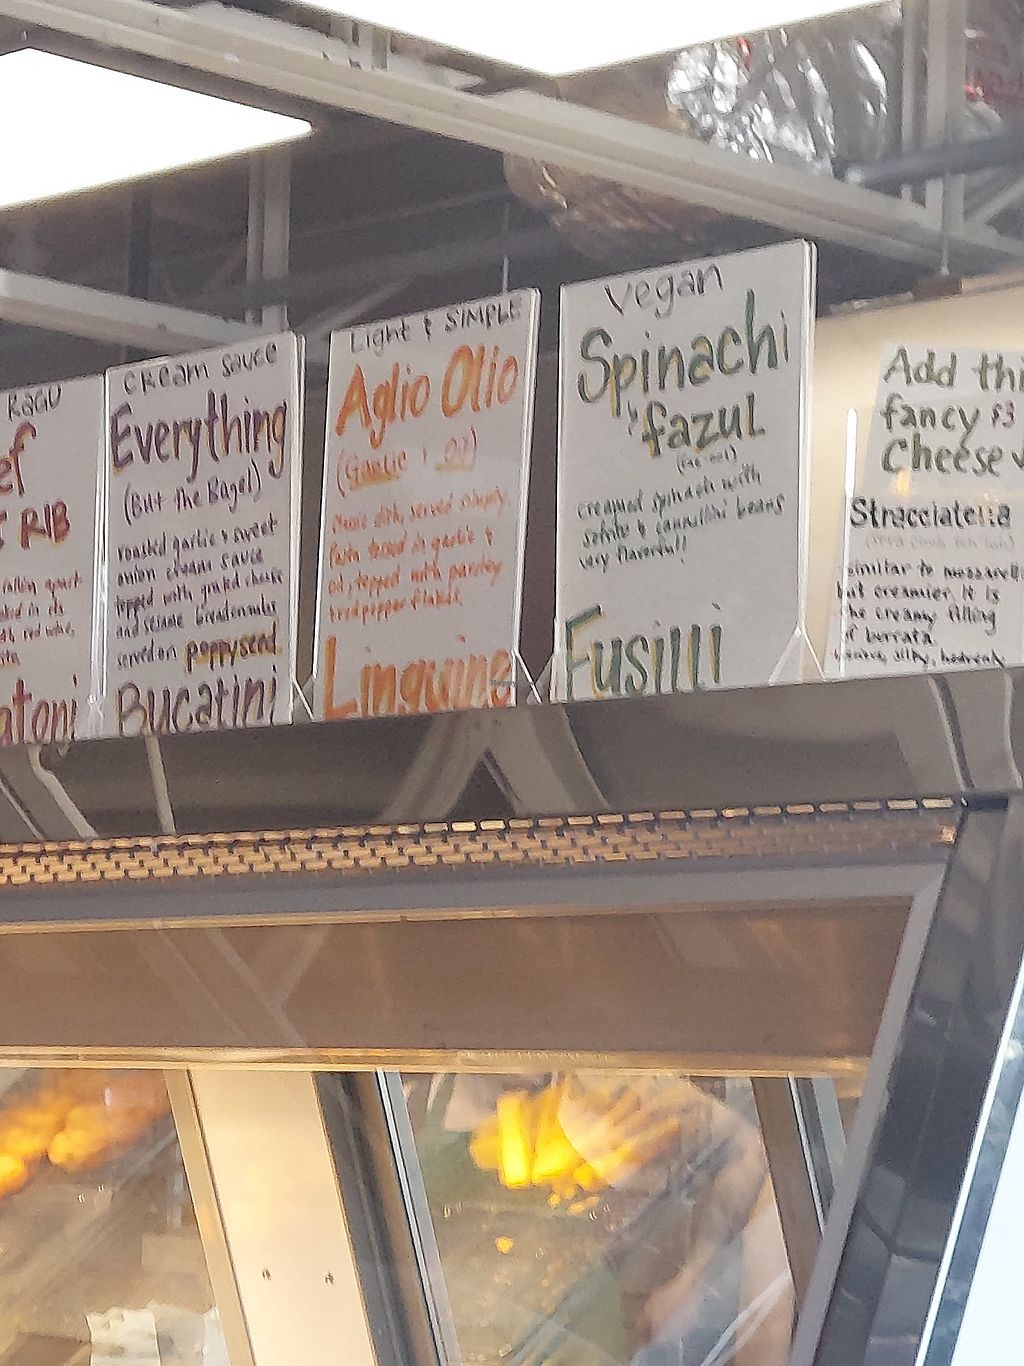 RAGU
ef
RIB
red wine,
atoni
CREAM SAUCE
Everything
(But the Bagel)
roasted garlic & sweet
onion cream sauce
topped with grated cheese
and sesame breadcrumbs
served on poppyseed
BUCATINI
Light & SIMPLE
Aglio Olio
(Garlic & Oil)
Classic dish, served simply.
Pasta tossed in garlic &
oil, topped with parsley
red pepper flakes.
Linguine
Happy
Vegan
Spinachi
& fazul
creamed spinach with
cannellini beans
very flavorful!
Fusilli
Add thi
fancy $3
Cheese
Stracciatella
similar to mozzarell
but creamier. It is
the creamy filling
of burrata.
silky, heavenly